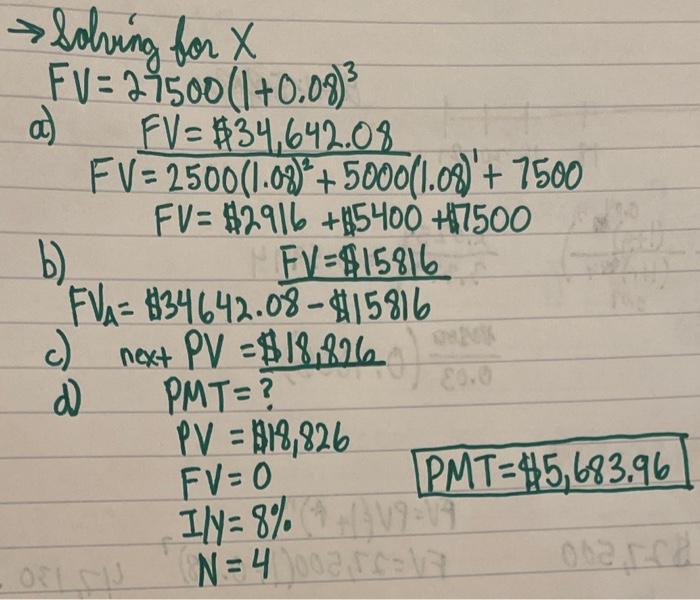 → Solving for X
FV = 27500(1+0.08)³
a) FV = $34,642.08
FV = 2500(1.08)² + 5000(1.08)¹ + 7500
FV = $2916 + $5400 + $7500
b) FV = $15816
FVA = $34642.08 - $15816
c) next PV = $18,826
d) PMT = ?
PV = $18,826
FV = 0
PMT = $5,683.96
I/Y = 8%
N = 4